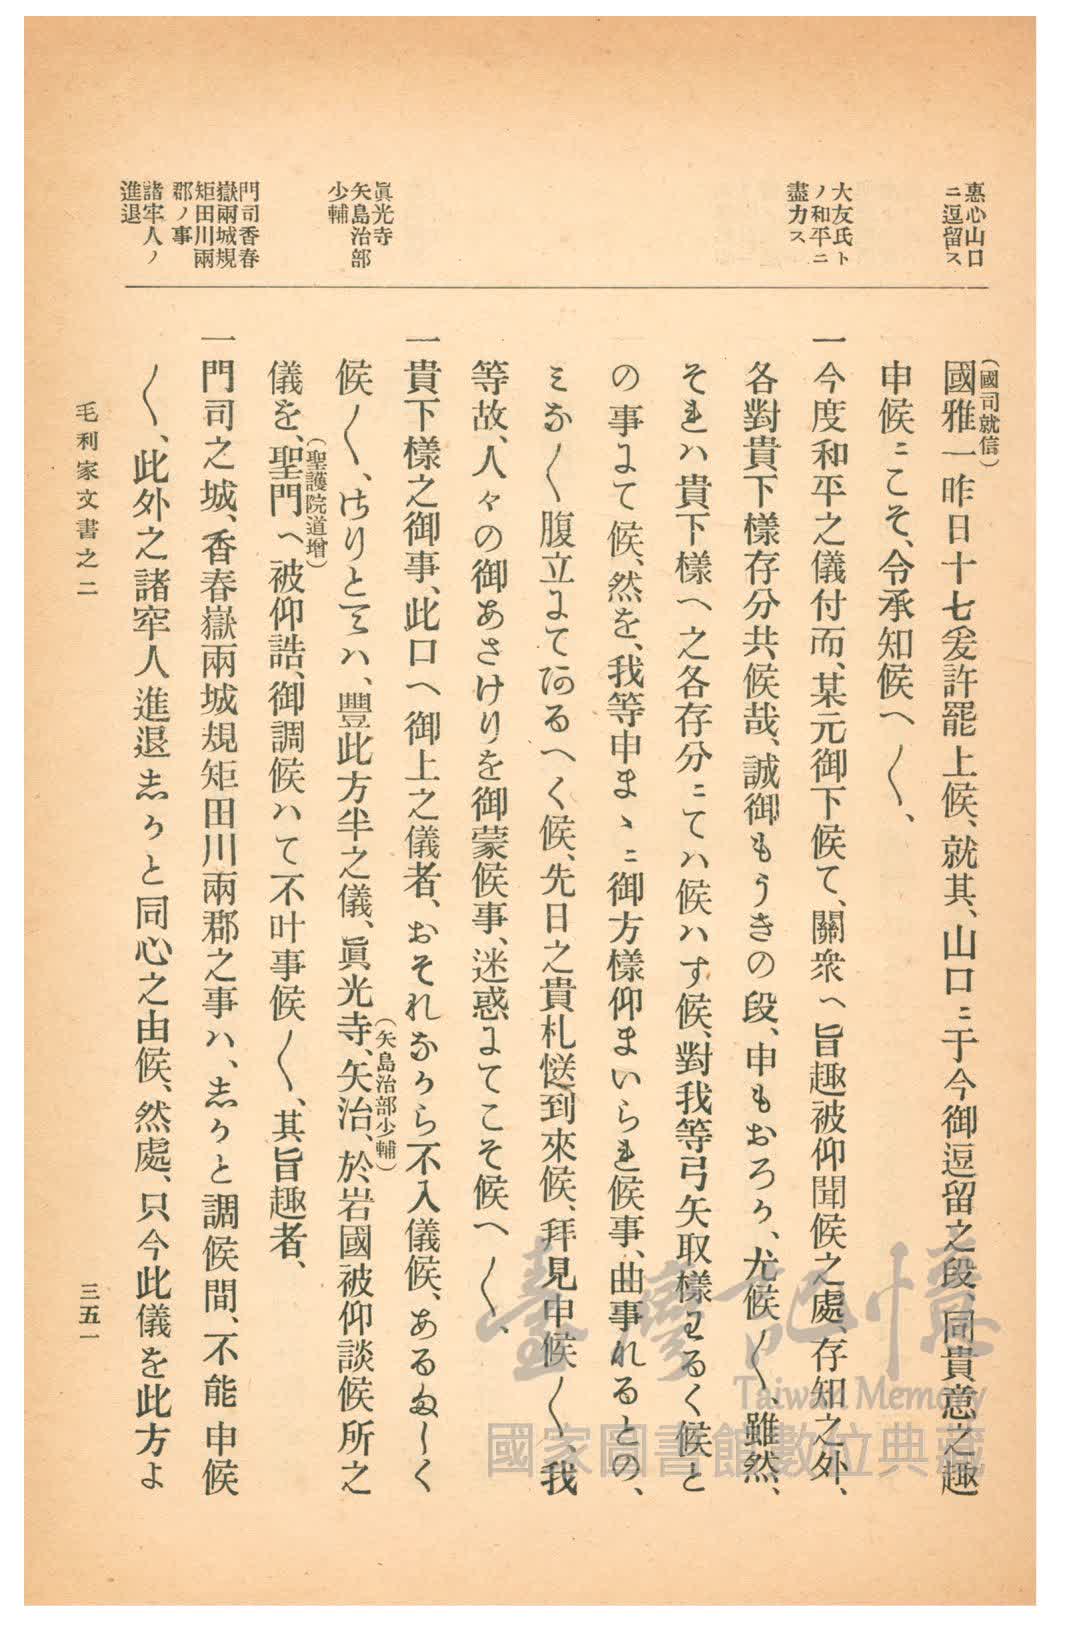 惠心山口
ニ逗留ス
大友氏ト
ノ和平ニ
盡力ス
眞光寺
矢島治部
少輔
門司香春
嶽兩城規
矩田川兩
郡ノ事
諸牢人ノ
進退
(國司就信)
國雅一昨日十七爰許罷上候、就其、山口ニ于今御逗留之段、同貴意之趣
申候ニこそ、令承知候へ〱、
一今度和平之儀付而、某元御下候て、關衆へ旨趣被仰聞候之處、存知之外、
各對貴下樣存分共候哉、誠御もうきの段、申もおろか、尤候〱、雖然、
それハ貴下樣へ之各存分ニてハ候ハす候、對我等弓矢取樣わるく候と
の事にて候、然を、我等申まゝニ御方樣仰まいられ候事、曲事れるとの、
ミな〱腹立にて可あるへく候、先日之貴札慥到來候、拜見申候〱、我
等故、人々の御あさけりを御蒙候事、迷惑にてこそ候へ〱、
一貴下樣之御事、此口へ御上之儀者、おそれなから不入儀候、あるましく
(矢島治部少輔)
候〱、けりとてハ、豐此方半之儀、眞光寺、矢治、於岩國被仰談候所之
(聖護院道增)
儀を、聖門へ被仰誥、御調候ハて不叶事候〱、其旨趣者、
一門司之城、香春嶽兩城規矩田川兩郡之事ハ、しかと調候間、不能申候
〱、此外之諸牢人進退しかと同心之由候、然處、只今此儀を此方よ
毛利家文書之二
三五一
臺灣記憶
Taiwan Memory
國家圖書館數位典藏